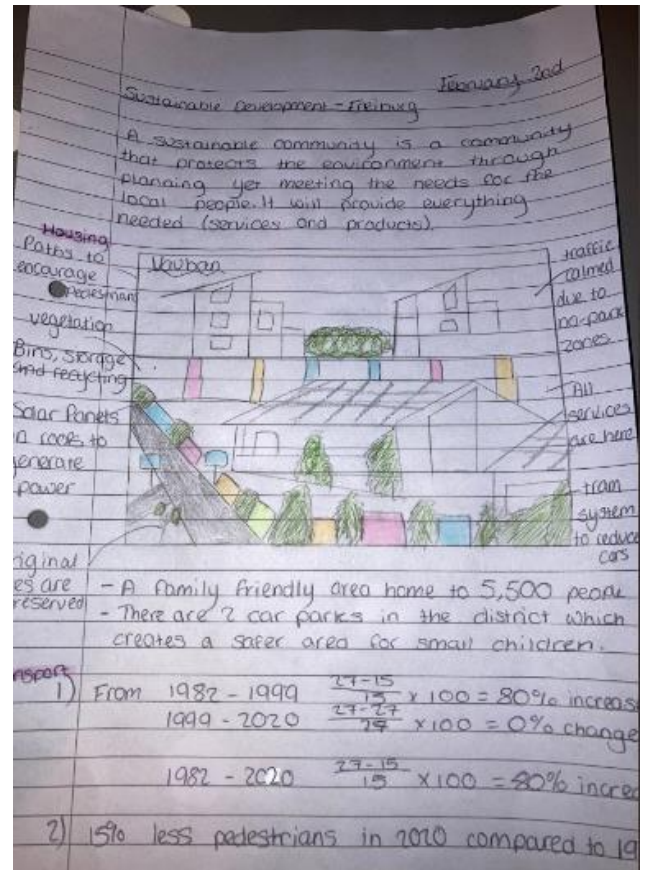 February 2nd
Sustainable Development - Freiburg
A sustainable community is a community
that protects the environment through
planning yet meeting the needs for the
local people. It will provide everything
needed (services and products).
Housing
Paths to
encourage
Pedestrians
vegetation
Bins, storage
and recycling
Solar Panels
roofs to
generate
power
Vauban
traffic
calmed
due to
no-park
zones
All
services
are here
tram
system
to reduce
cars
- A family friendly area home to 5,500 people
- There are 2 car parks in the district which
creates a safer area for small children.
1) From 1982 - 1999 27-15/15 x 100 = 80% increas
1999 - 2020 27-27/27 x 100 = 0% change
1982 - 2020 27-15/15 x 100 = 80% increa
2) 15% less pedestrians in 2020 compared to 19